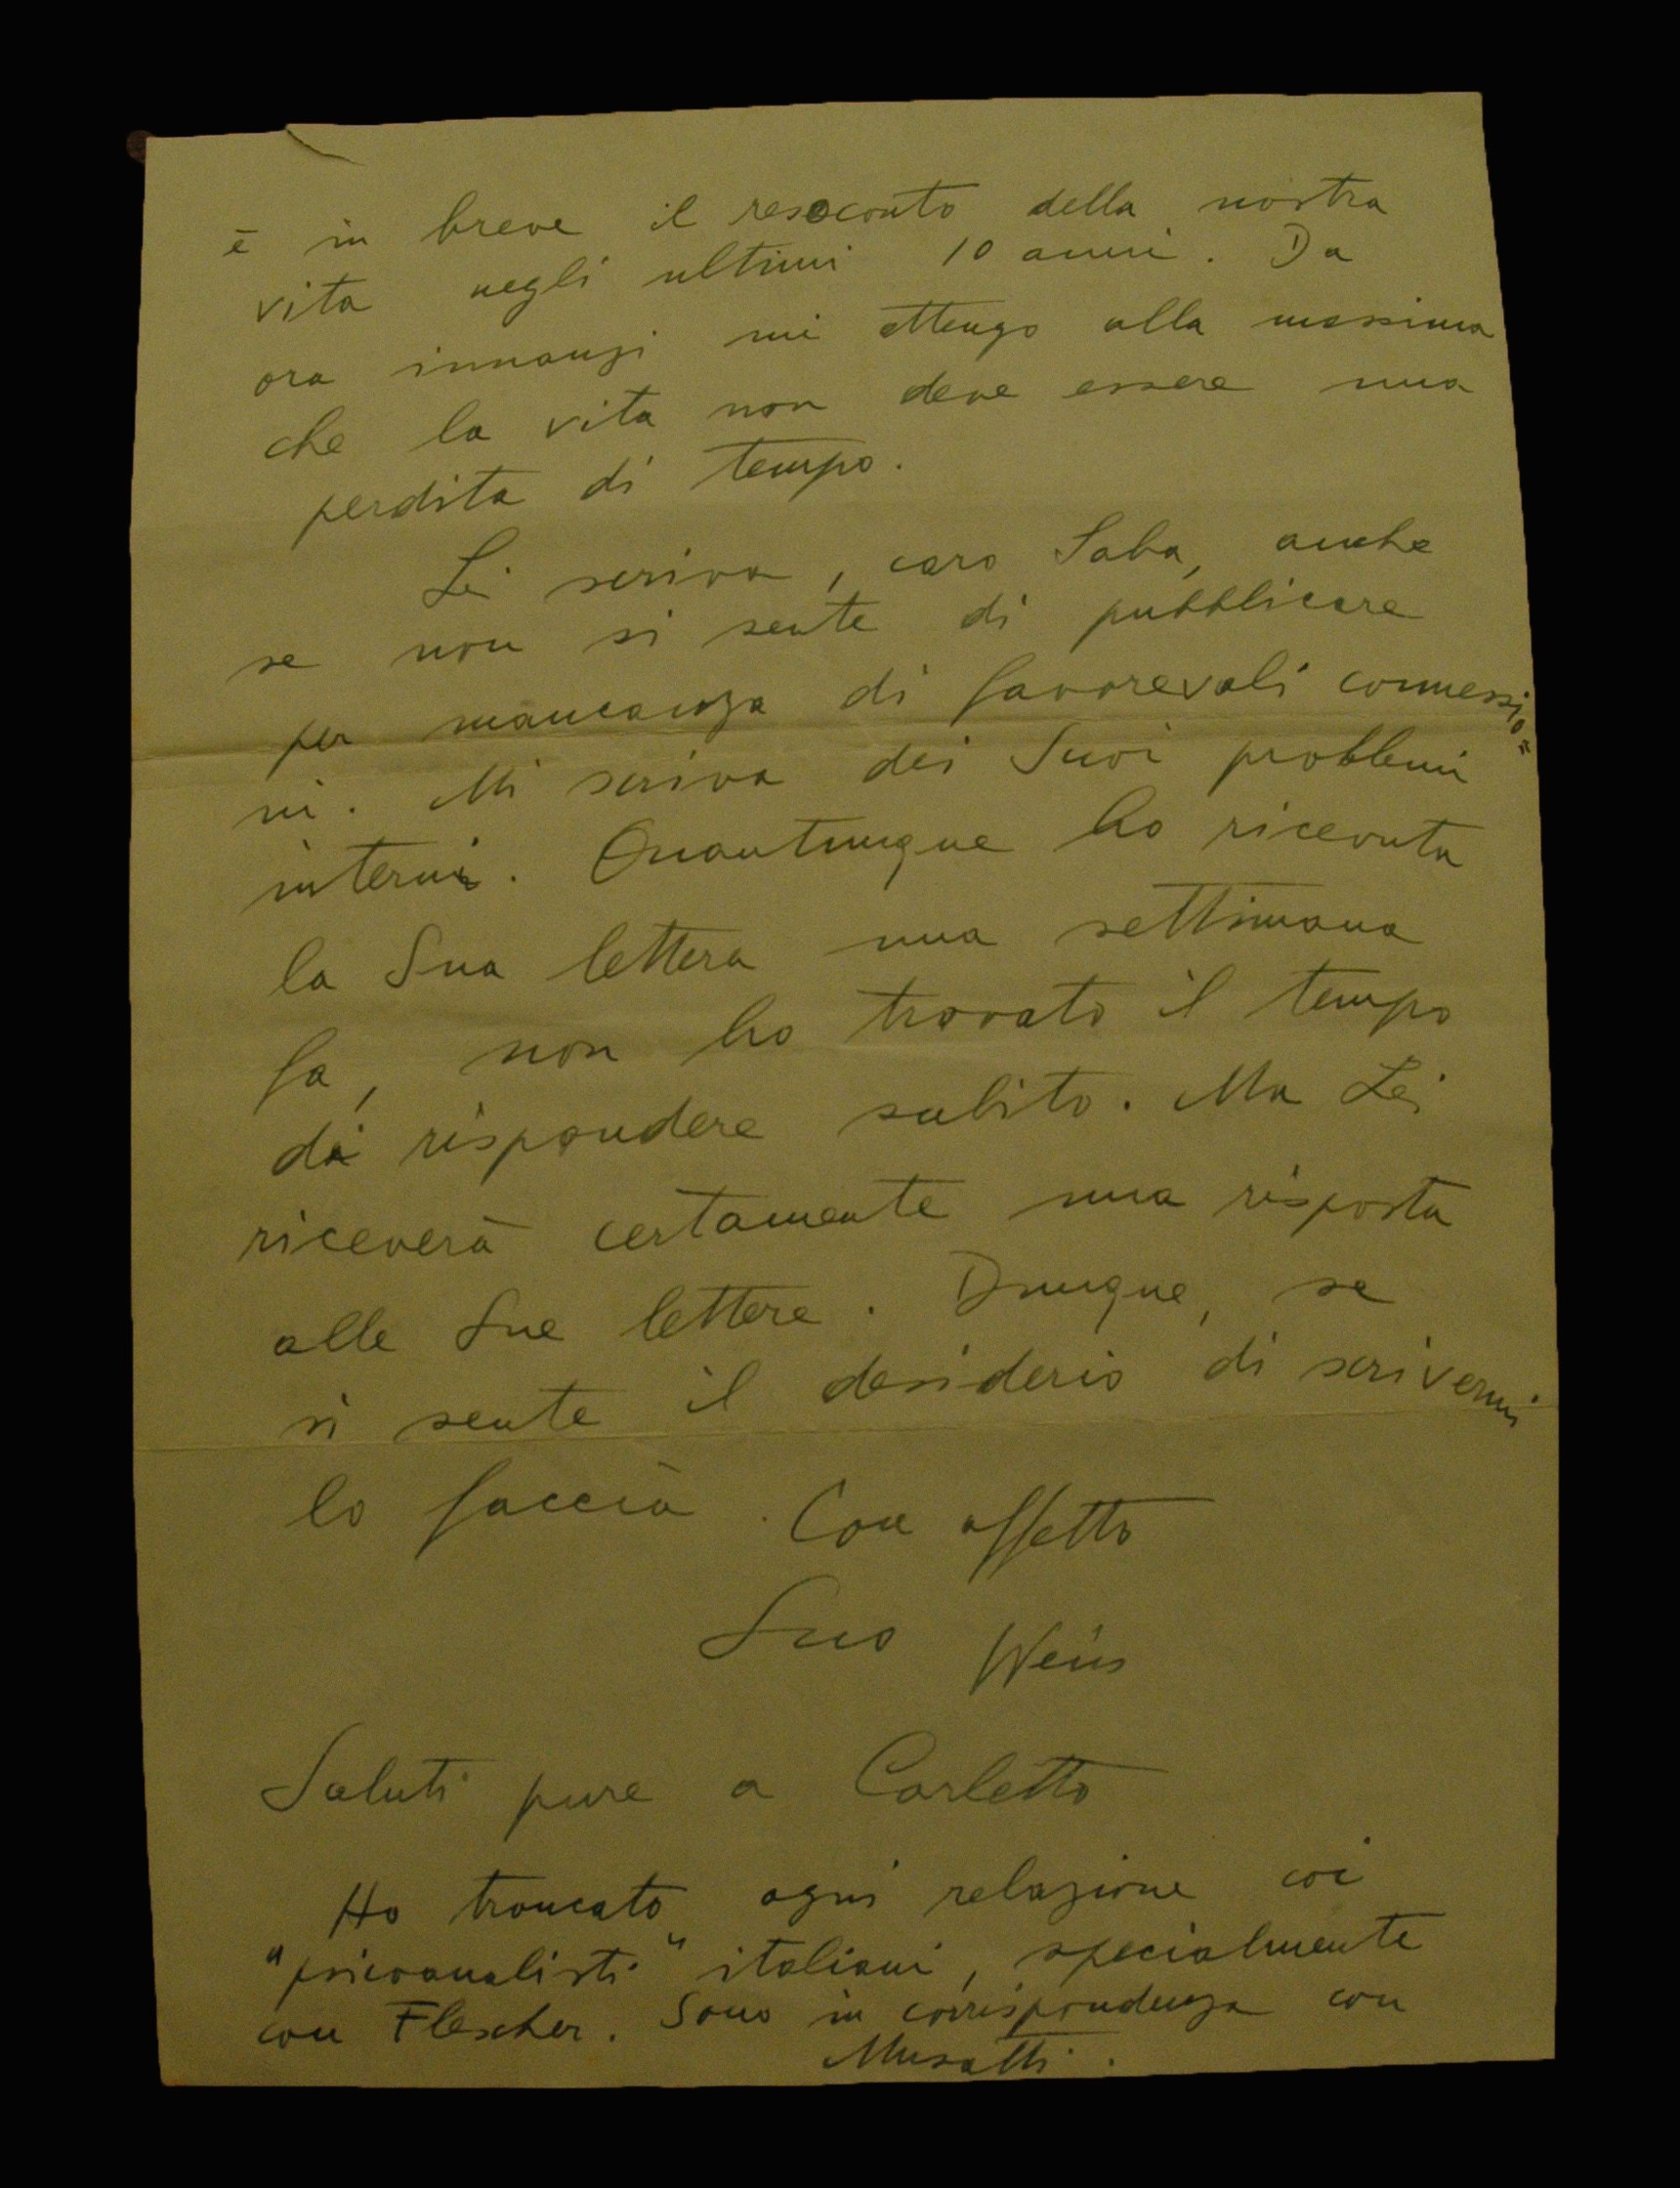 è in breve il resoconto della nostra
vita negli ultimi 10 anni. Da
ora innanzi mi attengo alla massima
che la vita non deve essere una
perdita di tempo.
Lei scriva, caro Saba, anche
se non si sente di pubblicare
per mancanza di favorevoli connessio=
ni. Mi scriva dei Suoi problemi
interni. Quantunque ho ricevuta
la Sua lettera una settimana
fa, non ho trovato il tempo
di rispondere subito. Ma Lei
riceverà certamente una risposta
alle Sue lettere. Dunque, se
si sente il desiderio di scrivermi
lo faccia. Con affetto
Suo Weiss
Saluti pure a Carletto
Ho troncato ogni relazione coi
"psicoanalisti" italiani, specialmente
con Flescher. Sono in corrispondenza con
Musatti.